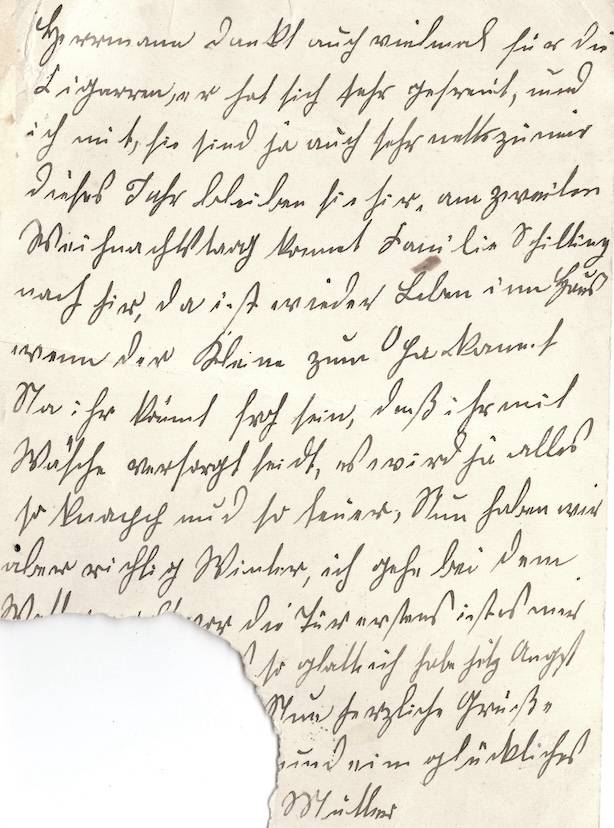 Herrmann dankt auch vielmal für die
Cigarren, er hat sich sehr gefreut, und
ich mit, sie sind ja auch sehr nett zu mir
dieses Jahr bleiben sie hir, am zweiten
Weihnachtstaag kommt Familie Schilling
nach hir, da ist wieder Leben im Haus
wenn der Kleine zum Opa kommt
Na ihr könnt froh sein, daß ihr mit
Wäsche versorgt seidt, es wird ja alles
so knapp und so teuer, Nun haben wir
aber richtig Winter, ich gehe bei dem
vor die Tür erstens ist es mir
so glatt ich habe Angst
Nun herzliche Grüße
und ein glückliches
Mutter